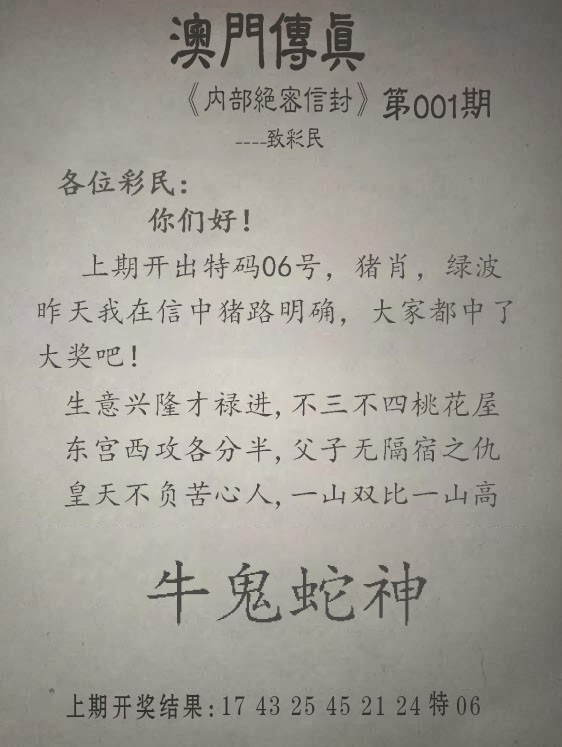 澳門傳真
《内部絕密信封》第001期
----致彩民
各位彩民：
你们好！
上期开出特码06号，猪肖，绿波
昨天我在信中猪路明确，大家都中了
大奖吧！
生意兴隆才禄进,不三不四桃花屋
东宫西攻各分半,父子无隔宿之仇
皇天不负苦心人,一山双比一山高
牛鬼蛇神
上期开奖结果:17 43 25 45 21 24 特 06